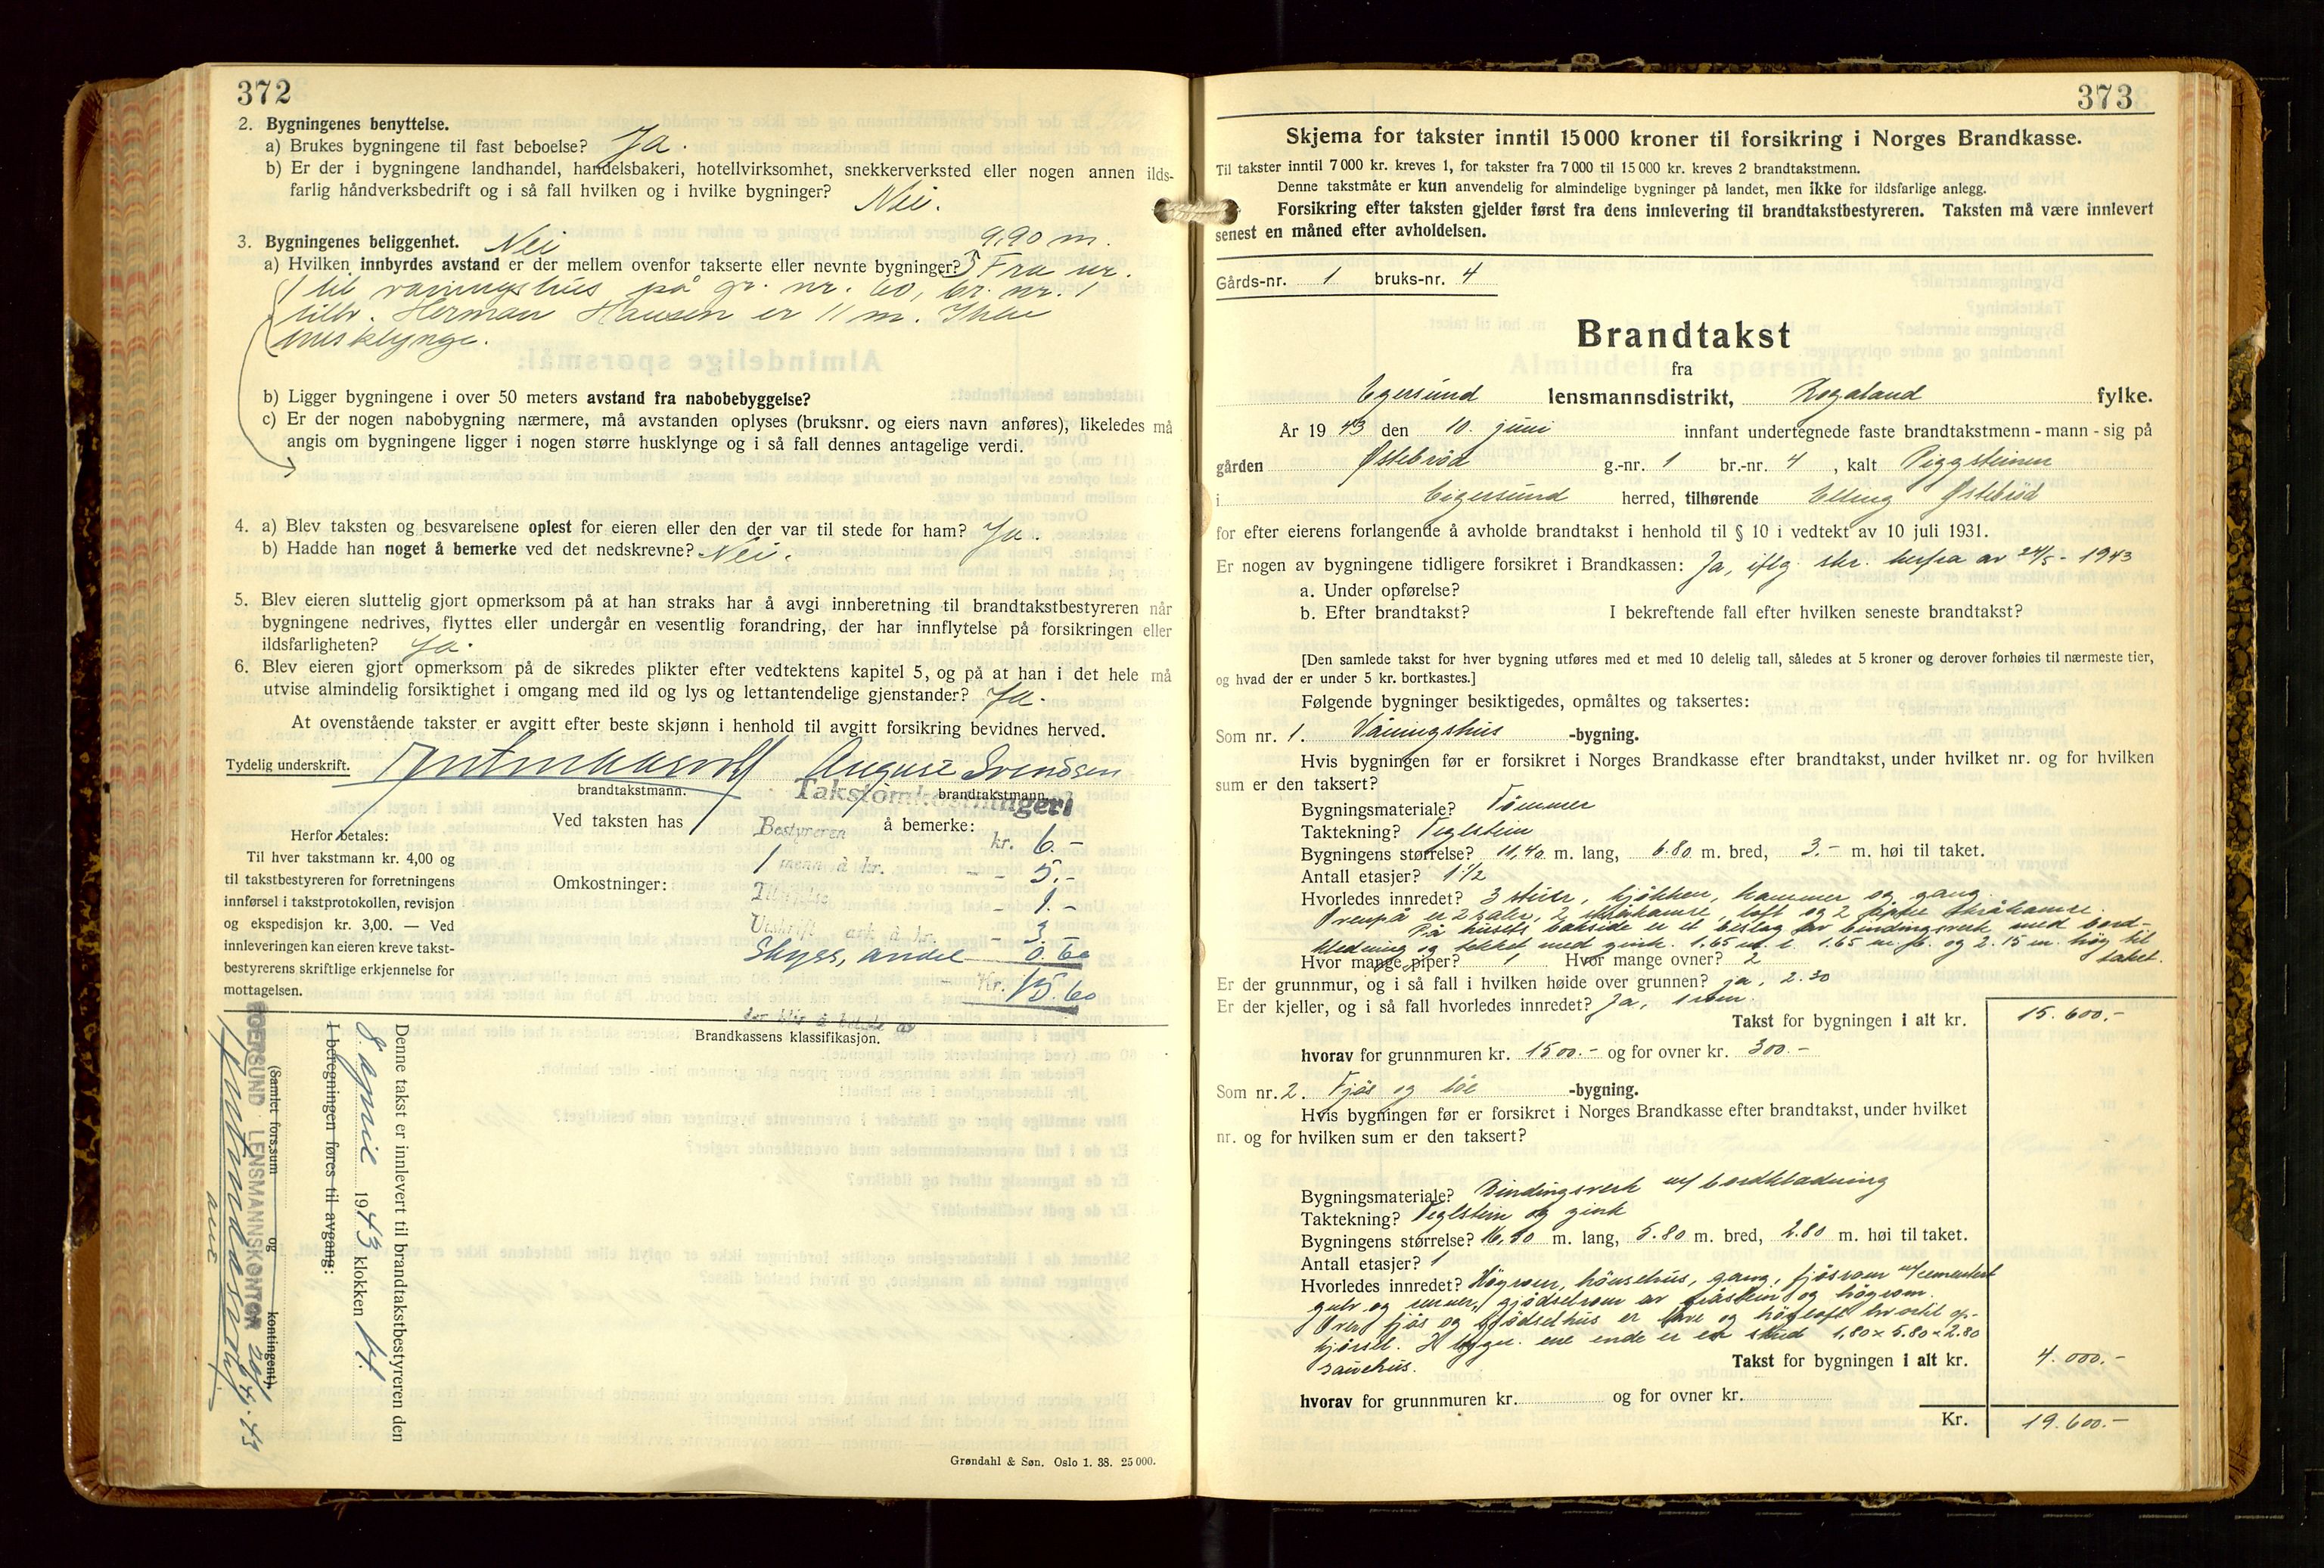 372
2. Bygningenes benyttelse.
a) Brukes bygningene til fast beboelse? Ja.
b) Er der i bygningene landhandel, handelsbakeri, hotellvirksomhet, snekkerverksted eller nogen annen ilds-
farlig håndverksbedrift og i så fall hvilken og i hvilke bygninger? Nei.
3. Bygningenes beliggenhet. Nei 9,90 m.
a) Hvilken innbyrdes avstand er der mellem ovenfor takserte eller nevnte bygninger? Fra nr.
1 til våningshus på gr. nr. 60, br. nr. 1
tilh. Herman Hansen er 11 m. Ikke
husklynge.
b) Ligger bygningene i over 50 meters avstand fra nabobebyggelse?
c) Er der nogen nabobygning nærmere, må avstanden oplyses (bruksnr. og eiers navn anføres), likeledes må
angis om bygningene ligger i nogen større husklynge og i så fall dennes antagelige verdi.
4. a) Blev taksten og besvarelsene oplest for eieren eller den der var til stede for ham? Ja.
b) Hadde han noget å bemerke ved det nedskrevne? Nei.
5. Blev eieren sluttelig gjort opmerksom på at han straks har å avgi innberetning til brandtakstbestyreren når
bygningene nedrives, flyttes eller undergår en vesentlig forandring, der har innflytelse på forsikringen eller
ildsfarligheten? Ja.
6. Blev eieren gjort opmerksom på de sikredes plikter efter vedtektenes kapitel 5, og på at han i det hele må
utvise almindelig forsiktighet i omgang med ild og lys og lettantendelige gjenstander? Ja.
At ovenstående takster er avgitt efter beste skjønn i henhold til avgitt forsikring bevidnes herved.
Tydelig underskrift. August Svendsen
brandtakstmann. brandtakstmann.
Takstomkostninger
Ved taksten has å bemerke:
Bestyreren kr. 6.-
1 menn à kr. - 5.-
- 1.-
Omkostninger:
Utskrift ark à kr. - 3.-
Skyss, andel 0.60
Kr. 15.60
der blir å betale av
Herfor betales:
Til hver takstmann kr. 4,00 og
til takstbestyreren for forretningens
innførsel i takstprotokollen, revisjon
og ekspedisjon kr. 3,00. — Ved
innleveringen kan eieren kreve takst-
bestyrerens skriftlige erkjennelse for
mottagelsen.
Brandkassens klassifikasjon.
Denne takst er innlevert til brandtakstbestyreren den
8. april 1943 klokken 14.
I beregningen føres til avgang:
(Samlet fors.sum og kontingent).
EGERSUND LENSMANNSKONTOR
Grøndahl & Søn. Oslo 1. 38. 25 000.
373
Skjema for takster inntil 15 000 kroner til forsikring i Norges Brandkasse.
Til takster inntil 7 000 kr. kreves 1, for takster fra 7 000 til 15 000 kr. kreves 2 brandtakstmenn.
Denne takstmåte er kun anvendelig for almindelige bygninger på landet, men ikke for ildsfarlige anlegg.
Forsikring efter taksten gjelder først fra dens innlevering til brandtakstbestyreren. Taksten må være innlevert
senest en måned efter avholdelsen.
Gårds-nr. 1 bruks-nr. 4
Brandtakst
fra
Egersund lensmannsdistrikt, Rogaland fylke.
År 1943 den 10. juni innfant undertegnede faste brandtakstmenn - mann - sig på
gården Østebrød g.-nr. 1 br.-nr. 4, kalt Piggsteinen
i Eigersund herred, tilhørende Elling Østebrød
for efter eierens forlangende å avholde brandtakst i henhold til § 10 i vedtekt av 10 juli 1931.
Er nogen av bygningene tidligere forsikret i Brandkassen: Ja, iflg. skr. herfra av 24/5 - 1943
a. Under opførelse?
b. Efter brandtakst? I bekreftende fall efter hvilken seneste brandtakst?
[Den samlede takst for hver bygning utføres med et med 10 delelig tall, således at 5 kroner og derover forhøies til nærmeste tier,
og hvad der er under 5 kr. bortkastes.]
Følgende bygninger besiktigedes, opmåltes og taksertes:
Som nr. 1. Våningshus -bygning.
Hvis bygningen før er forsikret i Norges Brandkasse efter brandtakst, under hvilket nr. og for hvilken
sum er den taksert?
Bygningsmateriale? Tømmer
Taktekning? Teglstein
Bygningens størrelse? 11,40 m. lang, 6.80 m. bred, 3.- m. høi til taket.
Antall etasjer? 1 1/2
Hvorledes innredet? 3 stuer, kjøkken, kammer og gang.
Ovenpå er 2 saler, 2 skråkamre, loft og 2 skråkamre.
På husets bakside er et beslag av bindingsverk med bord-
kledning og tekket med zink. 1.65 m. l. 1.65 m. b. og 2.15 m. høg til
taket.
Hvor mange piper? 1 Hvor mange ovner? 2
Er der grunnmur, og i så fall i hvilken høide over grunnen? ja, 2.30
Er der kjeller, og i så fall hvorledes innredet? Ja, 1 rom.
Takst for bygningen i alt kr. 15.600.-
hvorav for grunnmuren kr. 1500.- og for ovner kr. 300.-
Som nr. 2. Fjøs og løe -bygning.
Hvis bygningen før er forsikret i Norges Brandkasse efter brandtakst, under hvilket
nr. og for hvilken sum er den taksert?
Bygningsmateriale? Bindingsverk m/ bordkledning
Taktekning? Teglstein og zink
Bygningens størrelse? 16,50 m. lang, 5.80 m. bred, 2.80 m. høi til taket.
Antall etasjer? 1
Hvorledes innredet? Høyrom, hønsehus, gang, fjøsrom m/ cementert
gulv og renner, gjødselrom av gråstein og høyrom.
Over fjøs og gjødselhus er løve og høyloft hvortil op-
kjørsel. I bygn. ene ende er en skud 1.80 x 5.80 x 2.80
sauehus.
Takst for bygningen i alt kr. 4.000.-
hvorav for grunnmuren kr. og for ovner kr.
Kr. 19.600.-